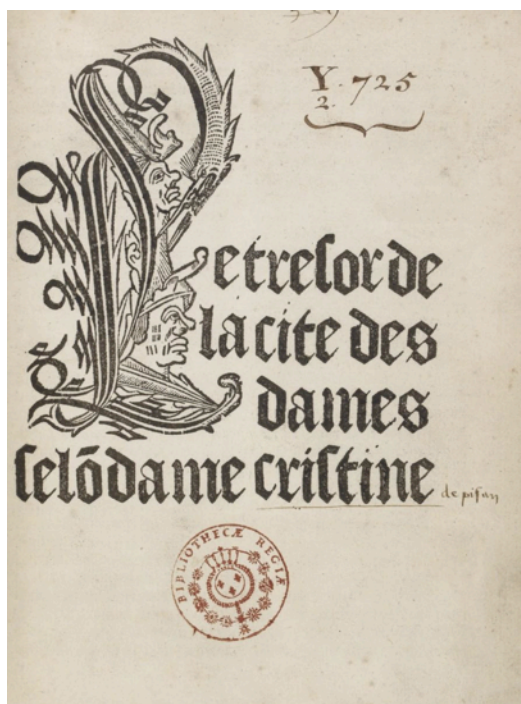 Y. 725
2.
Le tresor de
la cite des
dames
selõ dame cristine de pisan
BIBLIOTHECÆ REGIÆ